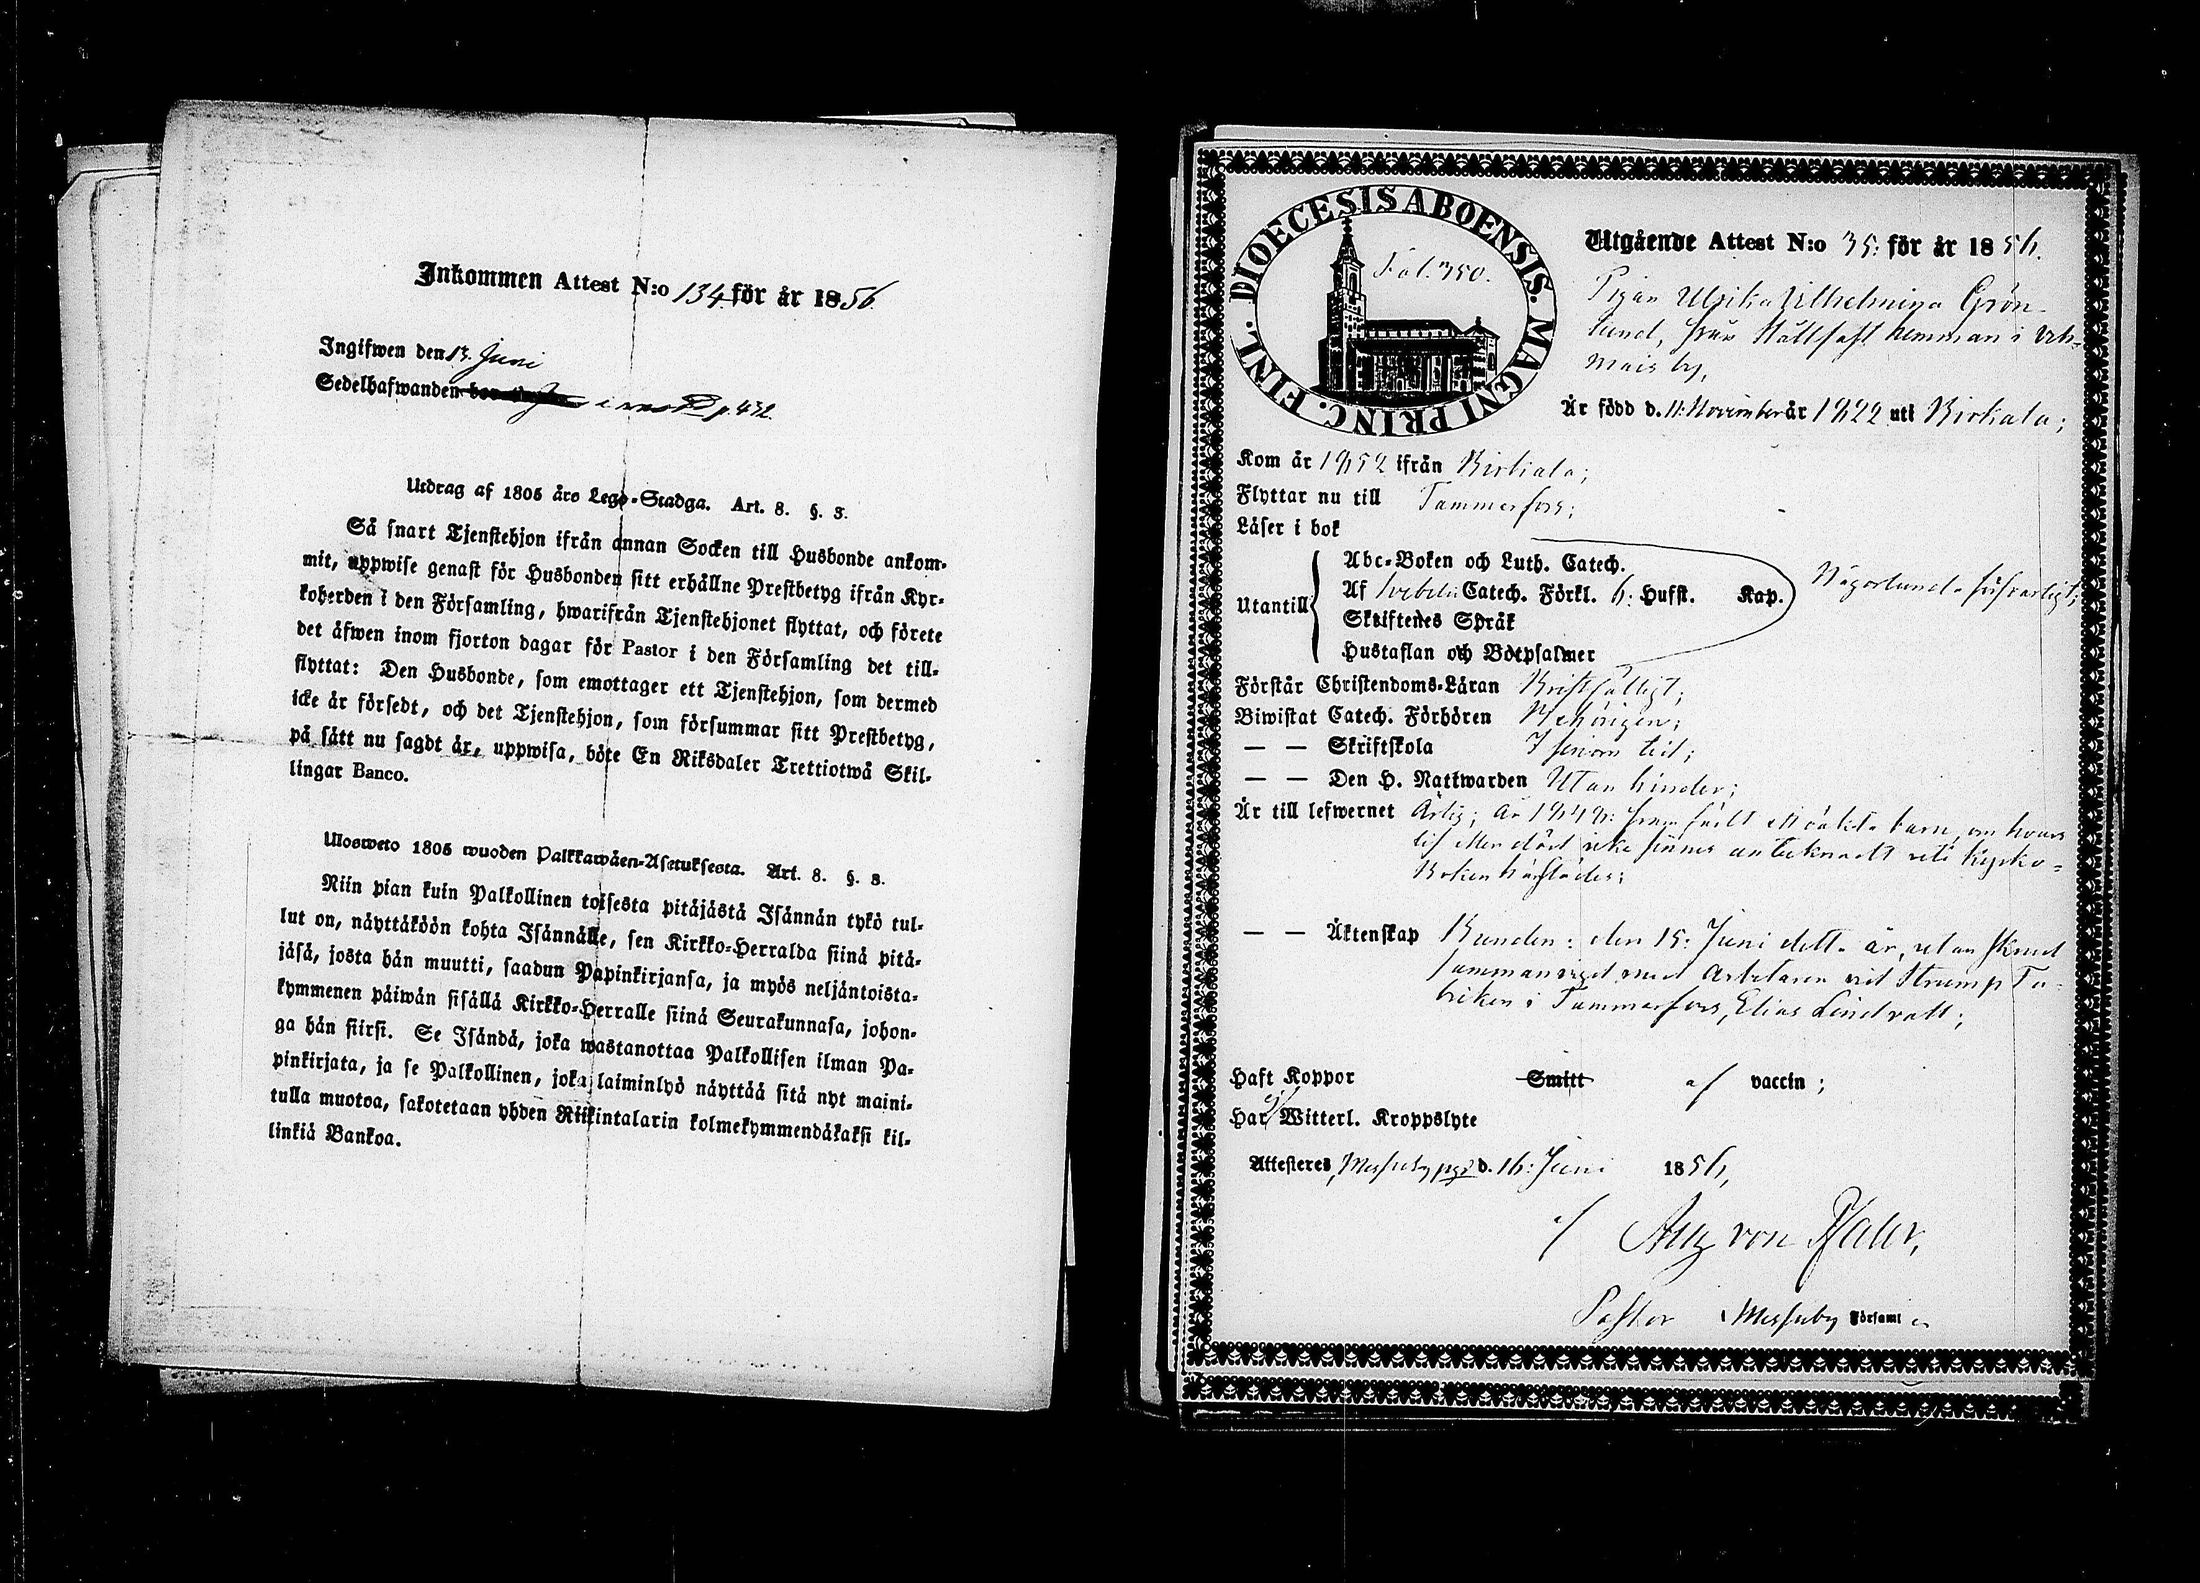 Inkommen Attest N:o 134 för år 1856
Ingifwen den 13. Juni
Sedelhafwanden i p. 432.
Utdrag af 1805 års Lego-Stadga. Art. 8. §. 3.
Så snart Tjenstehjon ifrån annan Socken till Husbonde ankom-
mit, uppwise genast för Husbonden sitt erhållne Prestbetyg ifrån Kyr-
koherden i den Församling, hwarifrån Tjenstehjonet flyttat, och förete
det äfwen inom fjorton dagar för Pastor i den Församling det till-
flyttat: Den Husbonde, som emottager ett Tjenstehjon, som dermed
icke är försedt, och det Tjenstehjon, som försummar sitt Prestbetyg,
på sätt nu sagdt är, uppwisa, böte En Riksdaler Trettiotwå Skil-
lingar Banco.
Ulosweto 1805 wuoden Palkkawäen-Asetuksesta. Art. 8. §. 3.
Niin pian kuin Palkollinen toisesta pitäjästä Isännän tykö tul-
lut on, näyttäköön kohta Isännälle, sen Kirkko-Herralda siinä pitä-
jäsä, josta hän muutti, saadun Papinkirjansa, ja myös neljäntoista-
kymmenen päiwän sisällä Kirkko-Herralle siinä Seurakunnasa, johon-
ga hän siirsi. Se Isändä, joka wastanottaa Palkollisen ilman Pa-
pinkirjata, ja se Palkollinen, joka laiminlyö näyttää sitä nyt maini-
tulla muotoa, sakotetaan yhden Riikintalarin kolmekymmendäkaksi kil-
linkiä Bankoa.
DIOECESIS ABOENSIS. MAGNI PRINC. FINL.
Fol. 350.
Utgående Attest N:o 35: för år 1856.
Pigan Ulrika Vilhelmina Grön-
lund, från Hallfast hemman i
mais by,
Är född d. 11: November år 1822 uti Birkala;
Kom år 1852 ifrån Birkala;
Flyttar nu till Tammerfors;
Läser i bok
Utantill
Abc-Boken och Luth. Catech.
Af Svebelii Catech. Förkl. 6: Hufst. Kap.
Skriftenes Språk
Hustaflan och Botpsalmer
Någorlunda försvarligt;
Förstår Christendoms-Läran Bristfälligt;
Biwistat Catech. Förhören Behörigen;
— — Skriftskola I sinom tid;
— — Den H. Nattwarden Utan hinder;
Är till lefwernet Ärlig; År 1848: framfödt ett oäkta barn, om hvars
lif eller död icke finnes anteknadt uti Kyrko-
Boken härstädes;
— — Äktenskap Bunden: den 15: Juni detta år, utan skrud
sammanvigd med Arbetaren vid Strump Fa-
briken i Tammerfors, Elias Lindvall;
Haft Koppor Smitt af vaccin;
Har ej Witterl. Kroppslyte
Attesteres, Messuby pgd d. 16: Juni 1856,
af Aug von Pfaler,
Pastor i Messuby Församl